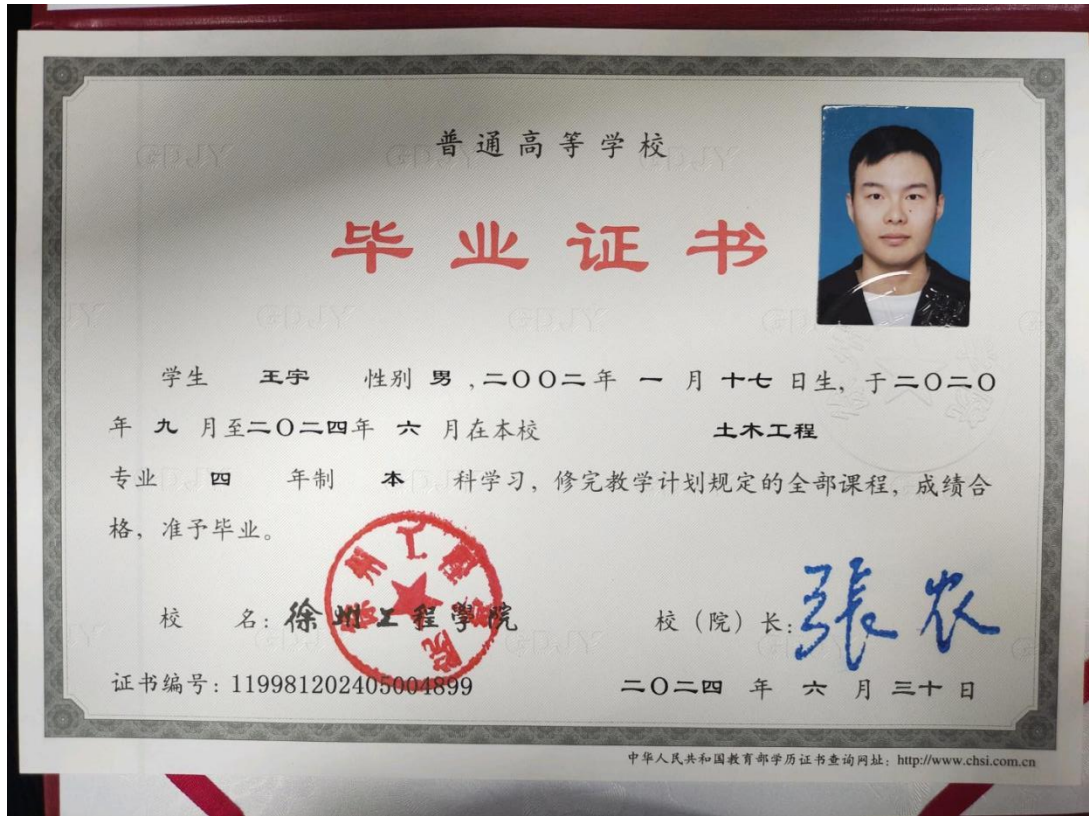 普通高等学校
毕业证书
学生 王宇 性别 男 ,二〇〇二年 一 月 十七 日生, 于二〇二〇
年 九 月至二〇二四年 六 月在本校 土木工程
专业 四 年制 本 科学习, 修完教学计划规定的全部课程, 成绩合
格, 准予毕业。
校 名: 徐州工程學院 校（院）长: 張农
证书编号: 119981202405004899 二〇二四 年 六 月 三十 日
中华人民共和国教育部学历证书查询网址: http://www.chsi.com.cn
GDJY
徐州工程学院